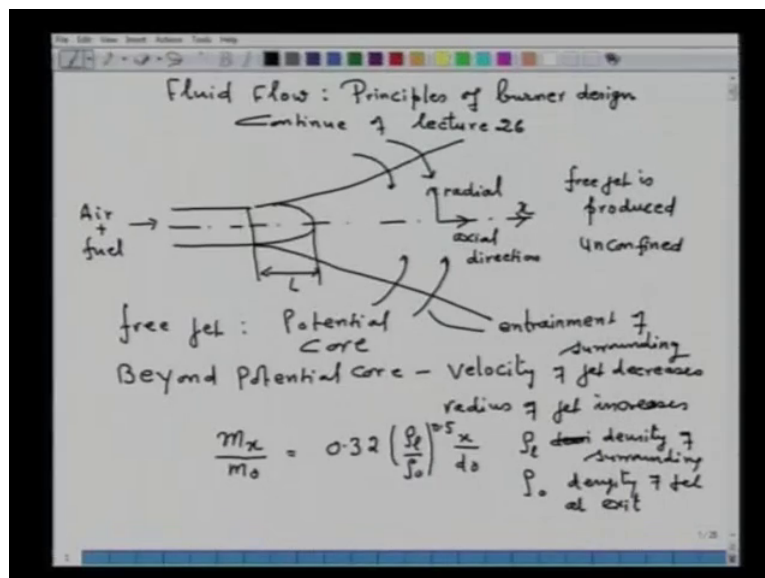 File Edit View Insert Actions Tools Help
Fluid Flow : Principles of burner design
Continue of lecture 26
Air
+
fuel
radial
x
axial
direction
free jet is
produced
unconfined
L
free jet : Potential
core
entrainment of
surrounding
Beyond Potential core – velocity of jet decreases
radius of jet increases
m_x/m_o = 0.32 (ρ_l/ρ_o)^0.5 x/d_o
ρ_l density of
surrounding
ρ_o density of jet
at exit
1/28